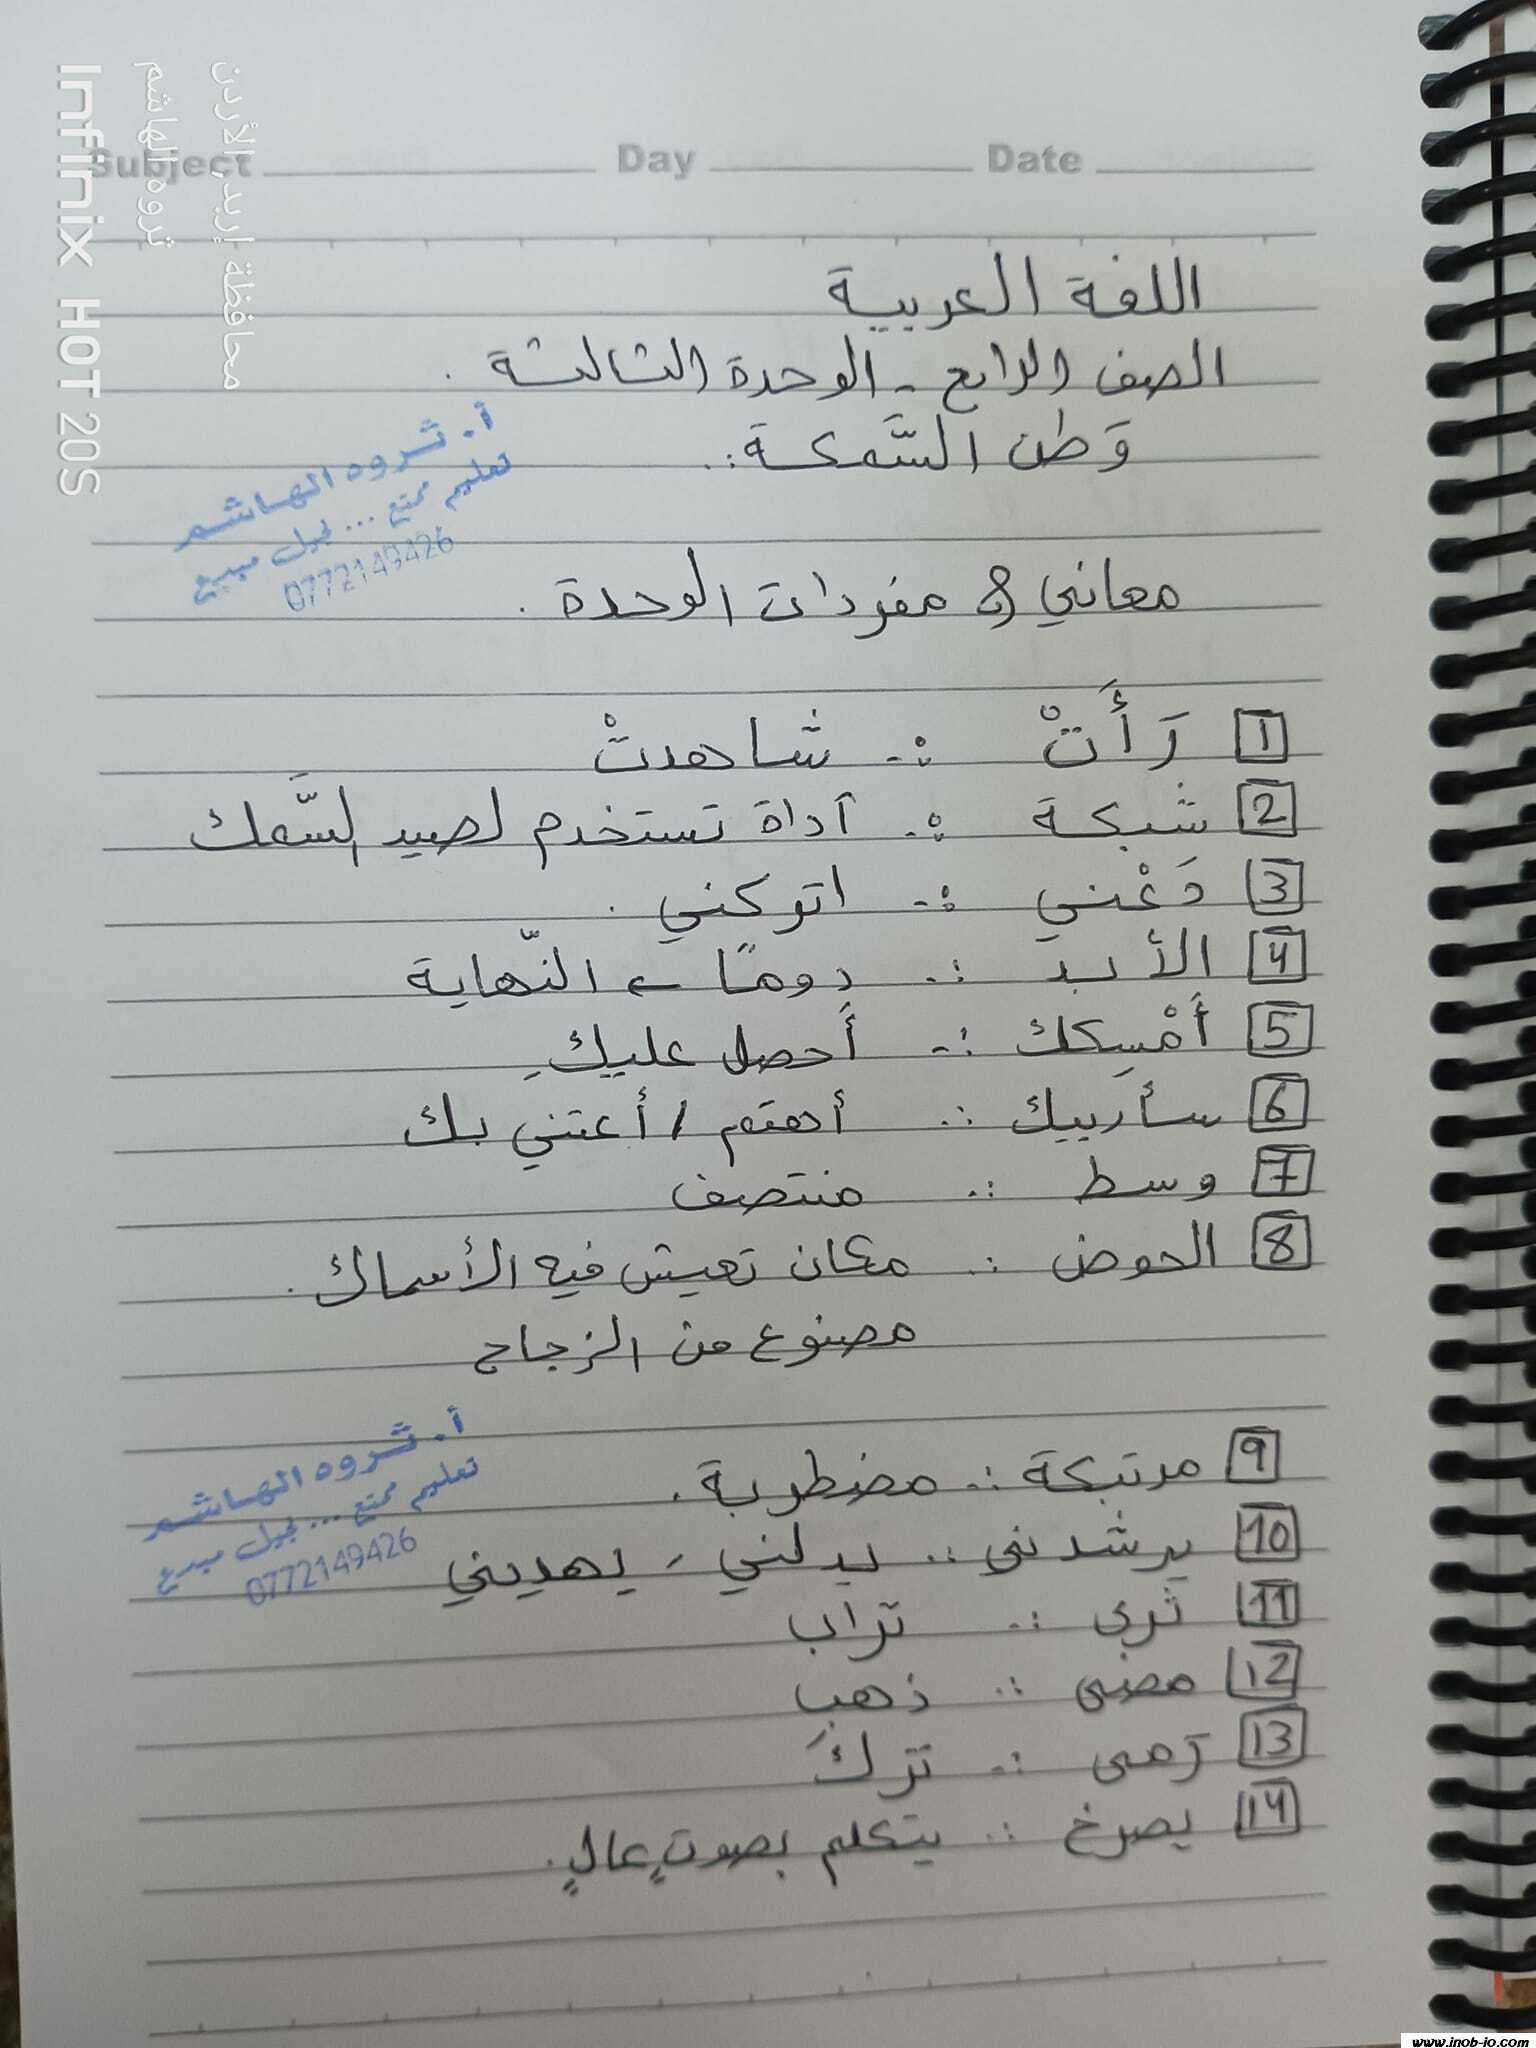 Subject Day Date
اللغة العربية
الصف الرابع - الوحدة الثالثة .
وَطن السَّمكة:.
أ. ثروه الهاشم
تعليم ممتع ... لجيل مبدع
0772149426
معاني & مفردات الوحدة .
1 رَأَتْ :. شاهدتْ
2 شبكة :. آداة تستخدم لصيد السَّمك
3 دَعْني :. اتركني .
4 الأبد :. دومًا ← النّهاية
5 أَمْسِكك :. أَحصل عليكِ
6 سأربيك :. أهتم / أعتني بك
7 وسط :. منتصف
8 الحوض :. مكان تعيش فيه الأسماك .
مصنوع من الزجاج
9 مرتبكة :. مضطربة .
10 يرشدني :. يدلني , يهديني
11 ثرى :. تراب
12 مضى :. ذهب
13 رَمى :. تركَ
14 يصرخ :. يتكلم بصوتٍ عالٍ .
أ. ثروه الهاشم
تعليم ممتع ... لجيل مبدع
0772149426
محافظة إربد، الأردن
ثروه الهاشم
Infinix HOT 20S
www.inob-jo.com